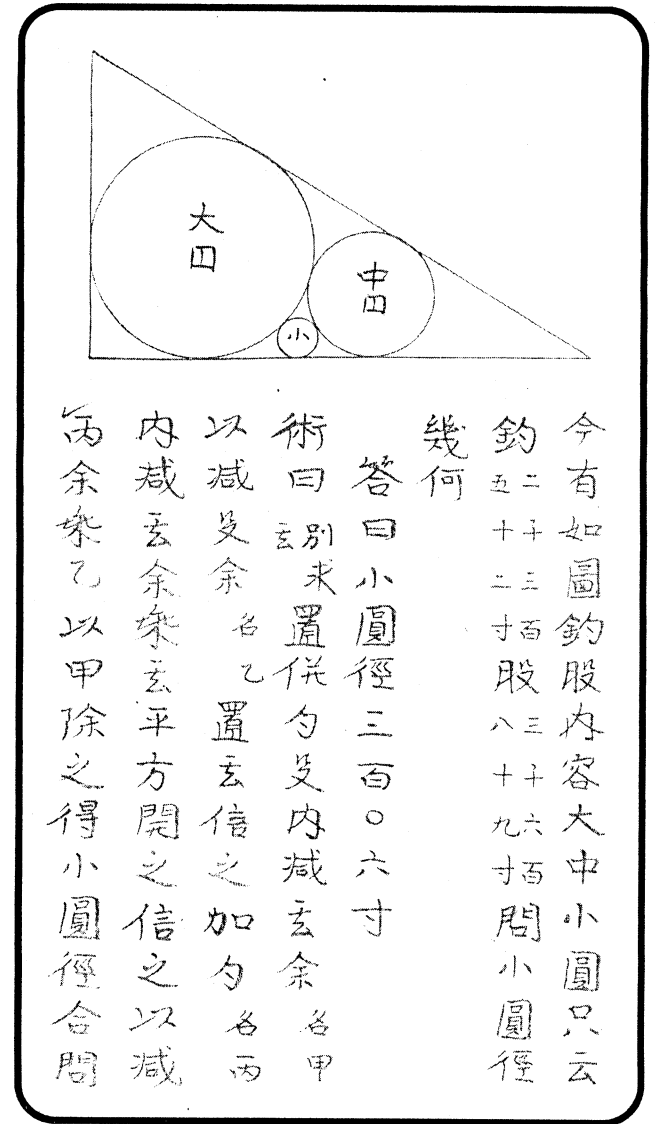 大円
中円
小
今有如圖釣股内容大中小圓只云
釣二千三百五十二寸股三千六百八十九寸問小圓徑
幾何
答曰小圓徑三百〇六寸
術曰別求玄置併勺殳内減玄余名甲
以減殳余名乙置玄信之加勺名丙
内減玄余乗玄平方開之信之以減
丙余乗乙以甲除之得小圓徑合問